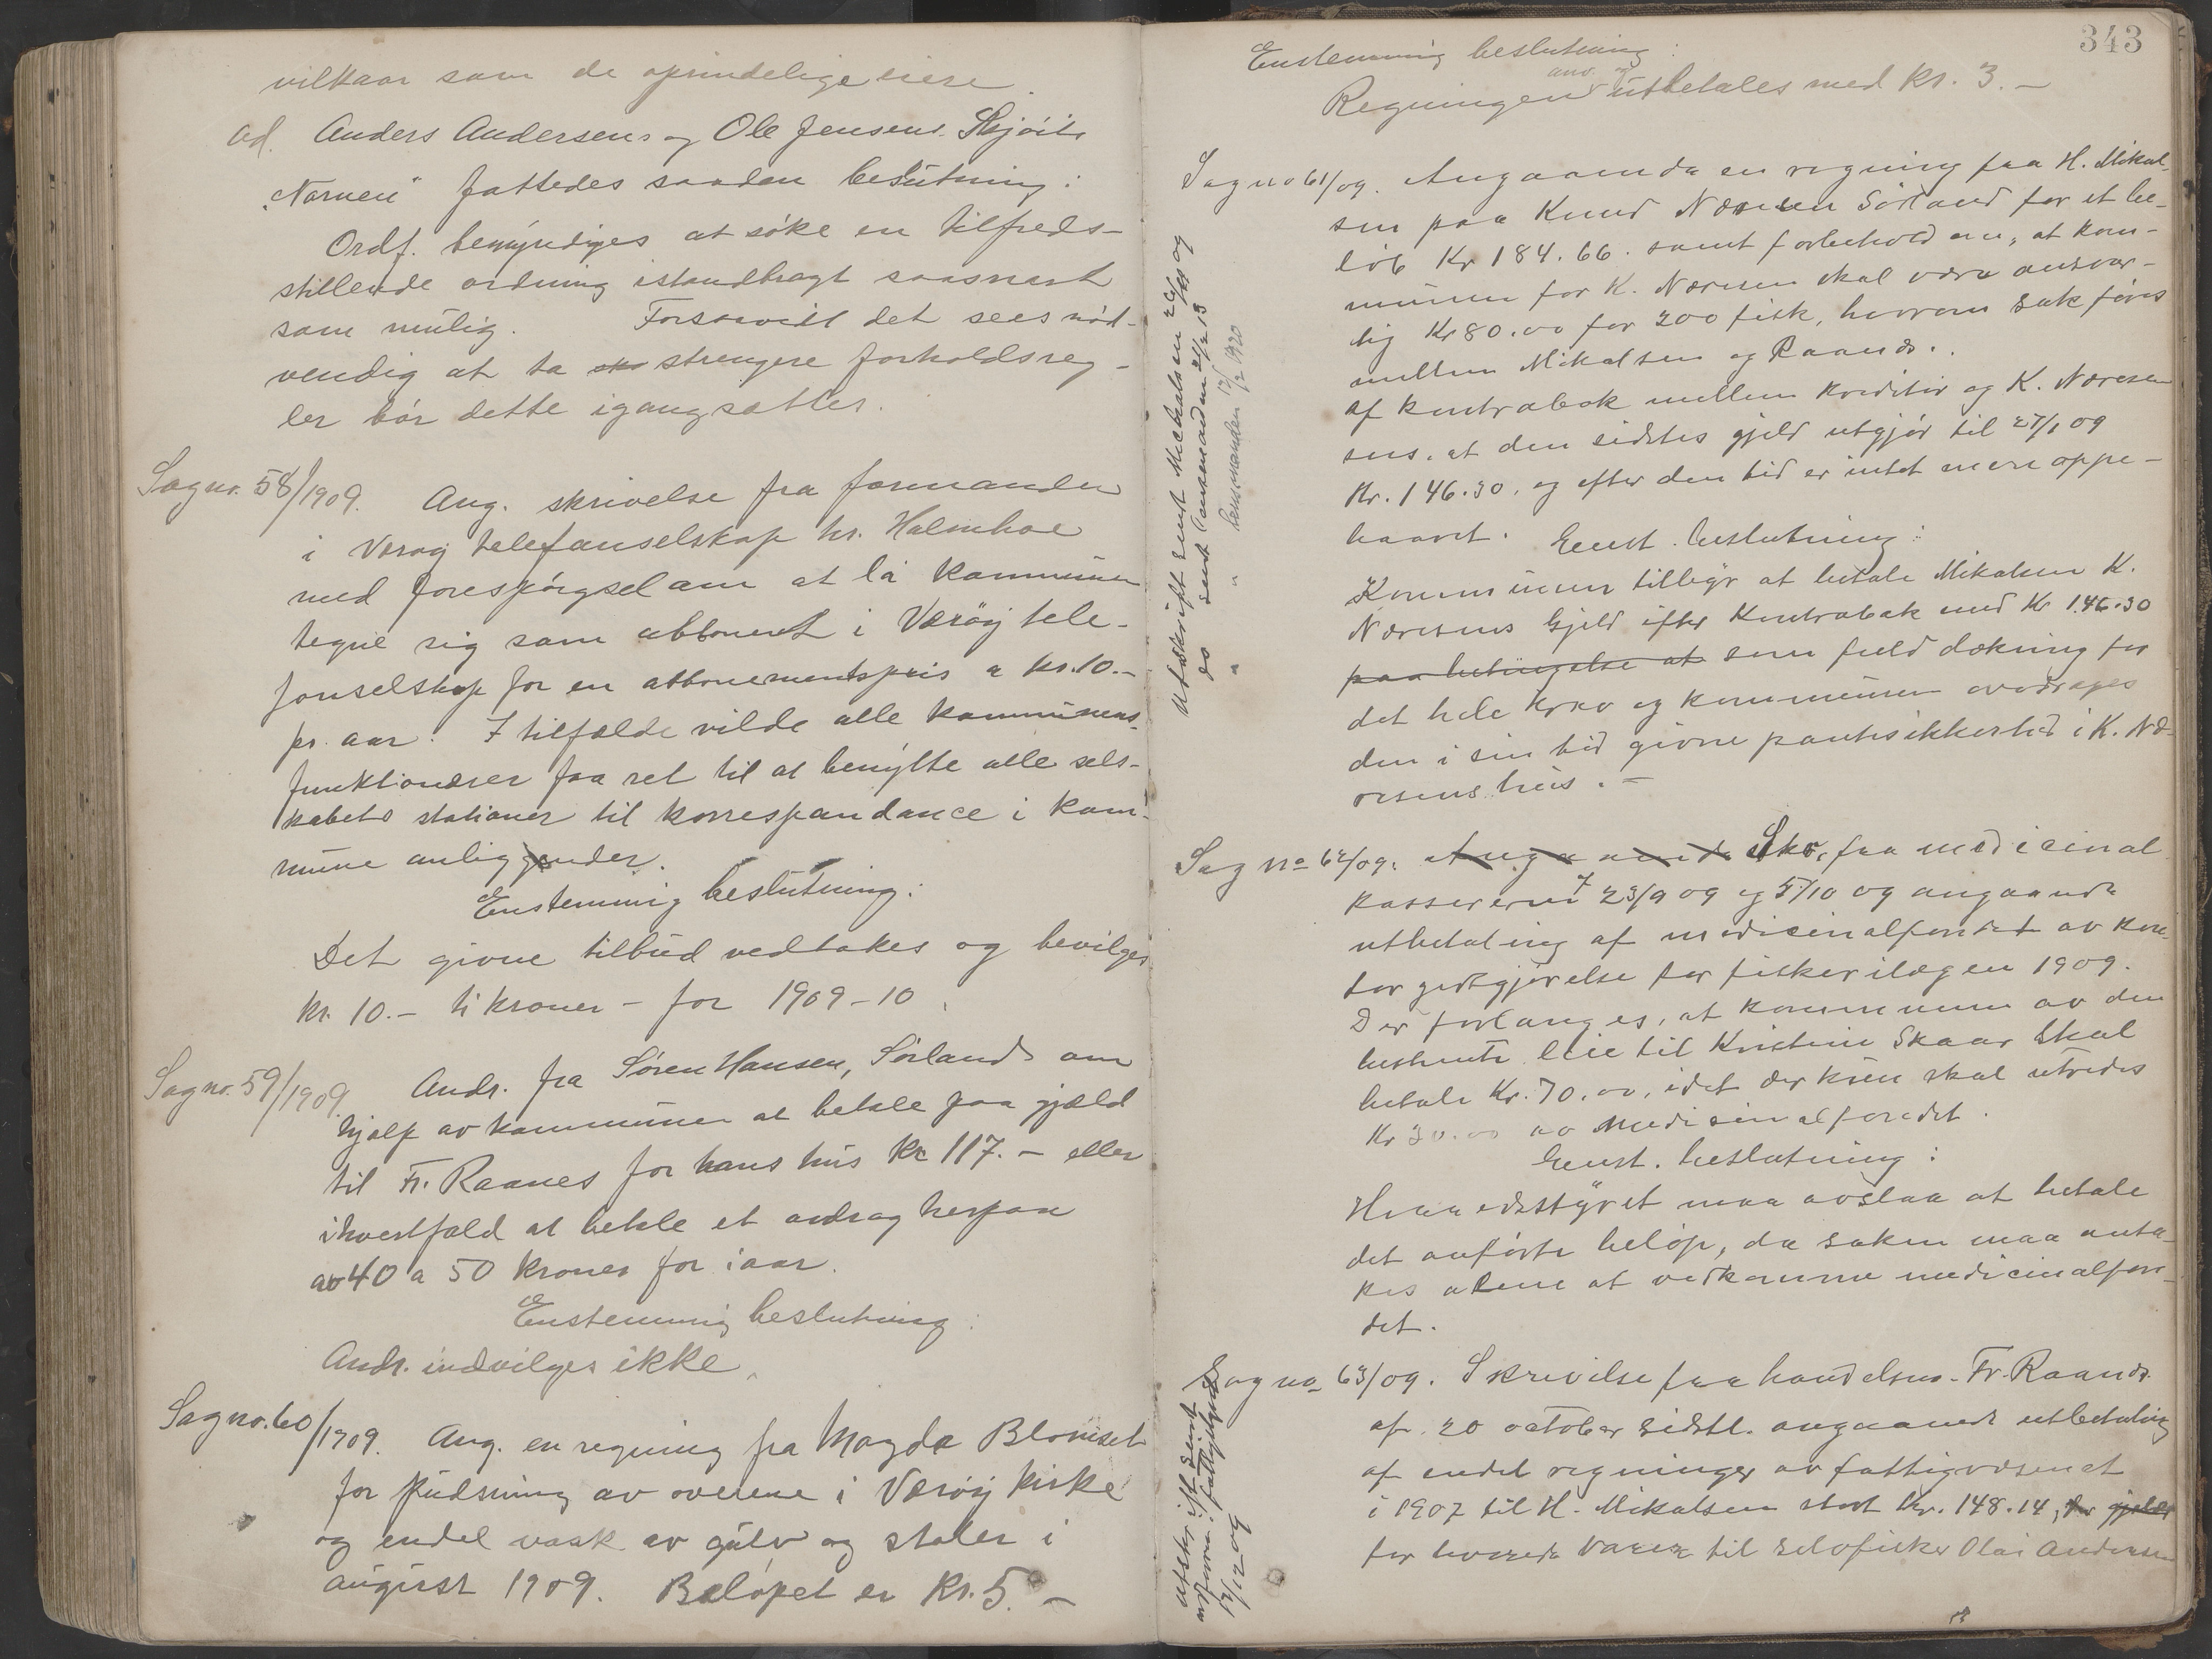 vilkaar som de oprindelige eiere.
ad. Anders Andersens og Ole Jensens Skjöite
"Narnen" fattedes saaden beslutning:
Ordf. bemyndiges at søke en tilfreds-
stillende ordning istandbragt saasnart
som mulig. Forsaavidt det sees nöd-
vendig at ta strengere forholdsreg-
ler bör dette igangsættes.
Sag nr. 58/1909. Ang. skrivelse fra formanden
i Værøy telefonselskap hr. Holmboe
med forespörgsel om at la kommunen
tegne sig som abbonent i Værøy tele-
fonselskap for en abbonementspris a kr. 10.-
pr. aar. I tilfælde vilde alle kommunens
funktionærer faa ret til at benytte alle sels-
kabets stationer til korrespondance i kom-
mune anliggender.
Enstemmig beslutning:
Det givne tilbud vedtakes og bevilges
kr. 10.- ti kroner - for 1909-10.
Sag nr. 59/1909. Andr. fra Søren Hansen, Sörland om
hjælp av kommunen at betale paa gjæld
til Fr. Raanes for hans hus kr 117.- eller
ihvertfald at betale et avdrag herpaa
av 40 a 50 kroner for iaar.
Enstemmig beslutning:
Andr. indvilges ikke.
Sag nr. 60/1909. Ang. en regning fra Magda Blomset
for pudsning av ovnene i Værøy kirke
og endel vask av gulv og stoler i
august 1909. Beløpet er kr. 5.-
343
Enstemmig beslutning:
Regningen anv. og utbetales med kr. 3.-
Sag no 61/09. Angaaende en regning fra H. Mikal-
sen paa Knud Næresen Sörland for et be-
löb Kr 184.66. samt forbehold om, at kom-
munen for K. Næresen skal være ansvar-
lig Kr 80.00 for 200 fisk, hvorom sak föres
mellem Mikalsen og Raanes.
Af kontrabok mellem kreditor og K. Næresen
sees, at den sidstes gjeld utgjör til 27/1 09
Kr. 146.30, og efter den tid er intet mere oppe-
baaret. Enst. beslutning:
Kommunen tilbyr at betale Mikalsen K.
Næresens Gjeld efter Kontrabok med Kr 146.30
paa betingelse at som fuld dækning for
det hele krav og kommunen overdrages
den i sin tid givne pantesikkerhed i K. Næ-
resens hus.-
Utskrift sendt Mikalsen
do sendt Lensmanden
" " Lensmanden 17/2 1920
Sag no 62/09. Angaaende Skr. fra medicinal
kassereren 23/9 09 og 5/10 09 angaaende
utbetaling af medisinalfondet av kon-
torgodtgjørelse for fiskerilægen 1909.
Der forlanges, at kommunen av den
bestemte leie til Kristine Skaar skal
betale Kr. 70.00, idet der kun skal utredes
Kr 30.00 av Medisinalfondet.
Enst. beslutning:
Herredsstyret maa avslaa at betale
det anförte belöp, da saken maa anta-
kes alene at vedkomme medicinalfon-
det.
Sag no 63/09. Skrivelse fra handelsm. Fr. Raanes
af 20 october sidstl. angaaende utbetaling
af endel regninger av fattigvæsenet
i 1907 til H. Mikalsen stort Kr. 148.14, der gjelder
for leverede Varer til selvfisker Olai Andersen
Utskrift sendt
fattigstyret
17/12 09